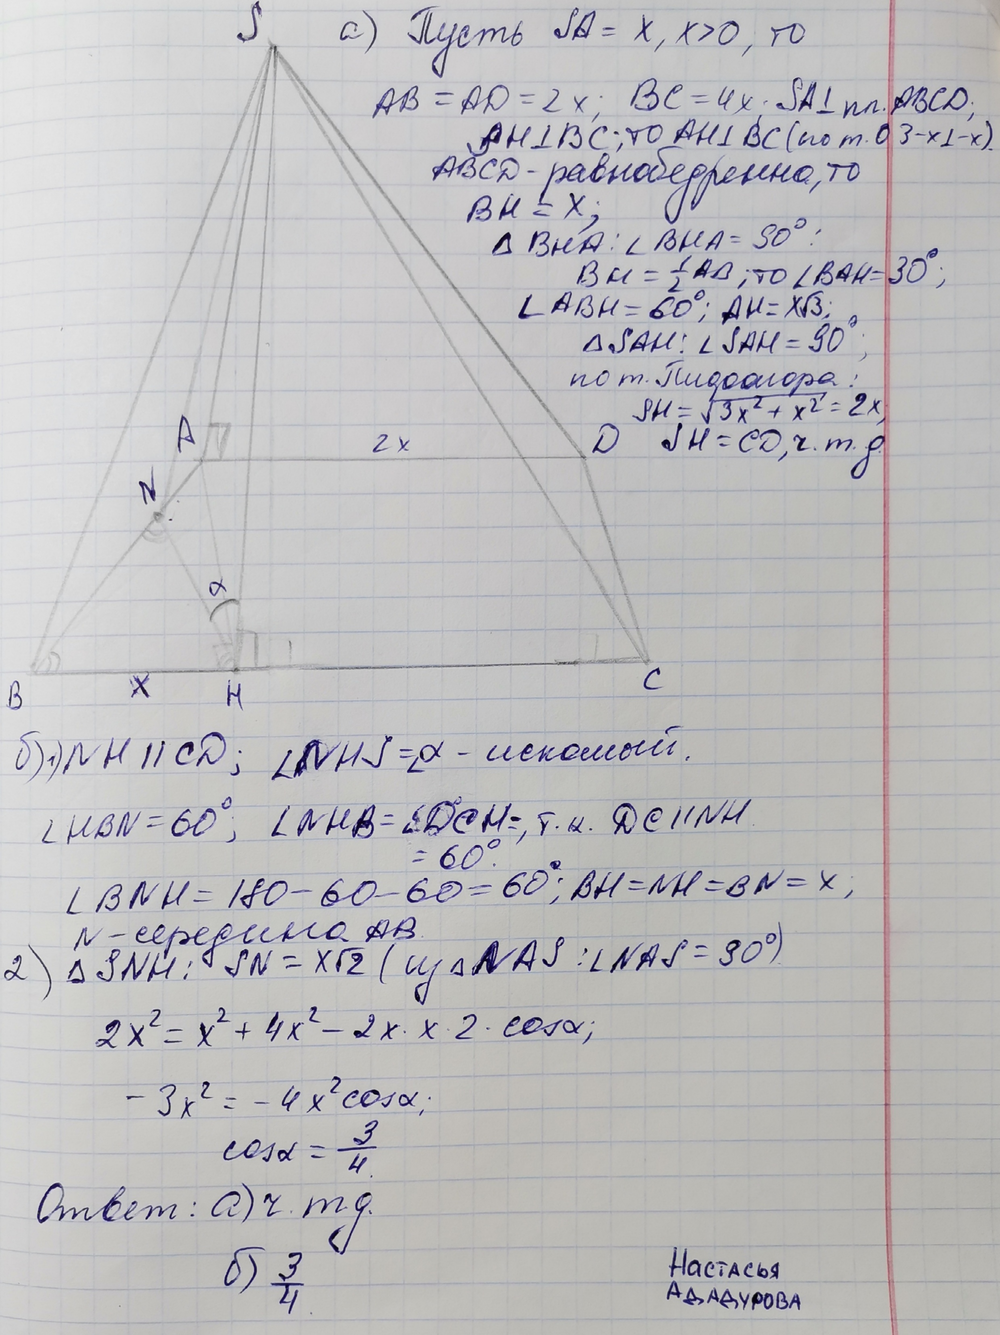 S
а) Пусть SA = x, x>0, то
AB = AD = 2x; BC = 4x; SA⊥ пл. ABCD;
AH⊥BC; то AH⊥BC (по т. о 3-х⊥-х)
ABCD - равнобедренна, то
BH = x;
△ BHA: ∠BHA = 90°:
BH = 1/2 AB; то ∠BAH = 30°;
∠ABH = 60°; AH = x√3;
△SAH: ∠SAH = 90°;
по т. Пифагора:
SH = √3x² + x² = 2x;
SH = CD, ч.т.д.
A
2x
D
N
α
B
x
H
C
б) 1) NH || CD; ∠NHS = ∠α - искомый.
∠HBN = 60°; ∠NHB = ∠DCH =, т.к. DC||NH.
= 60°.
∠BNH = 180 - 60 - 60 = 60°; BH = NH = BN = x;
N - середина AB.
2) △SNH: SN = x√2 (из △NAS: ∠NAS = 90°)
2x² = x² + 4x² - 2x · x · 2 · cosα;
-3x² = -4x² cosα;
cosα = 3/4.
Ответ: а) ч.тд.
б) 3/4.
Настасья
Ададурова